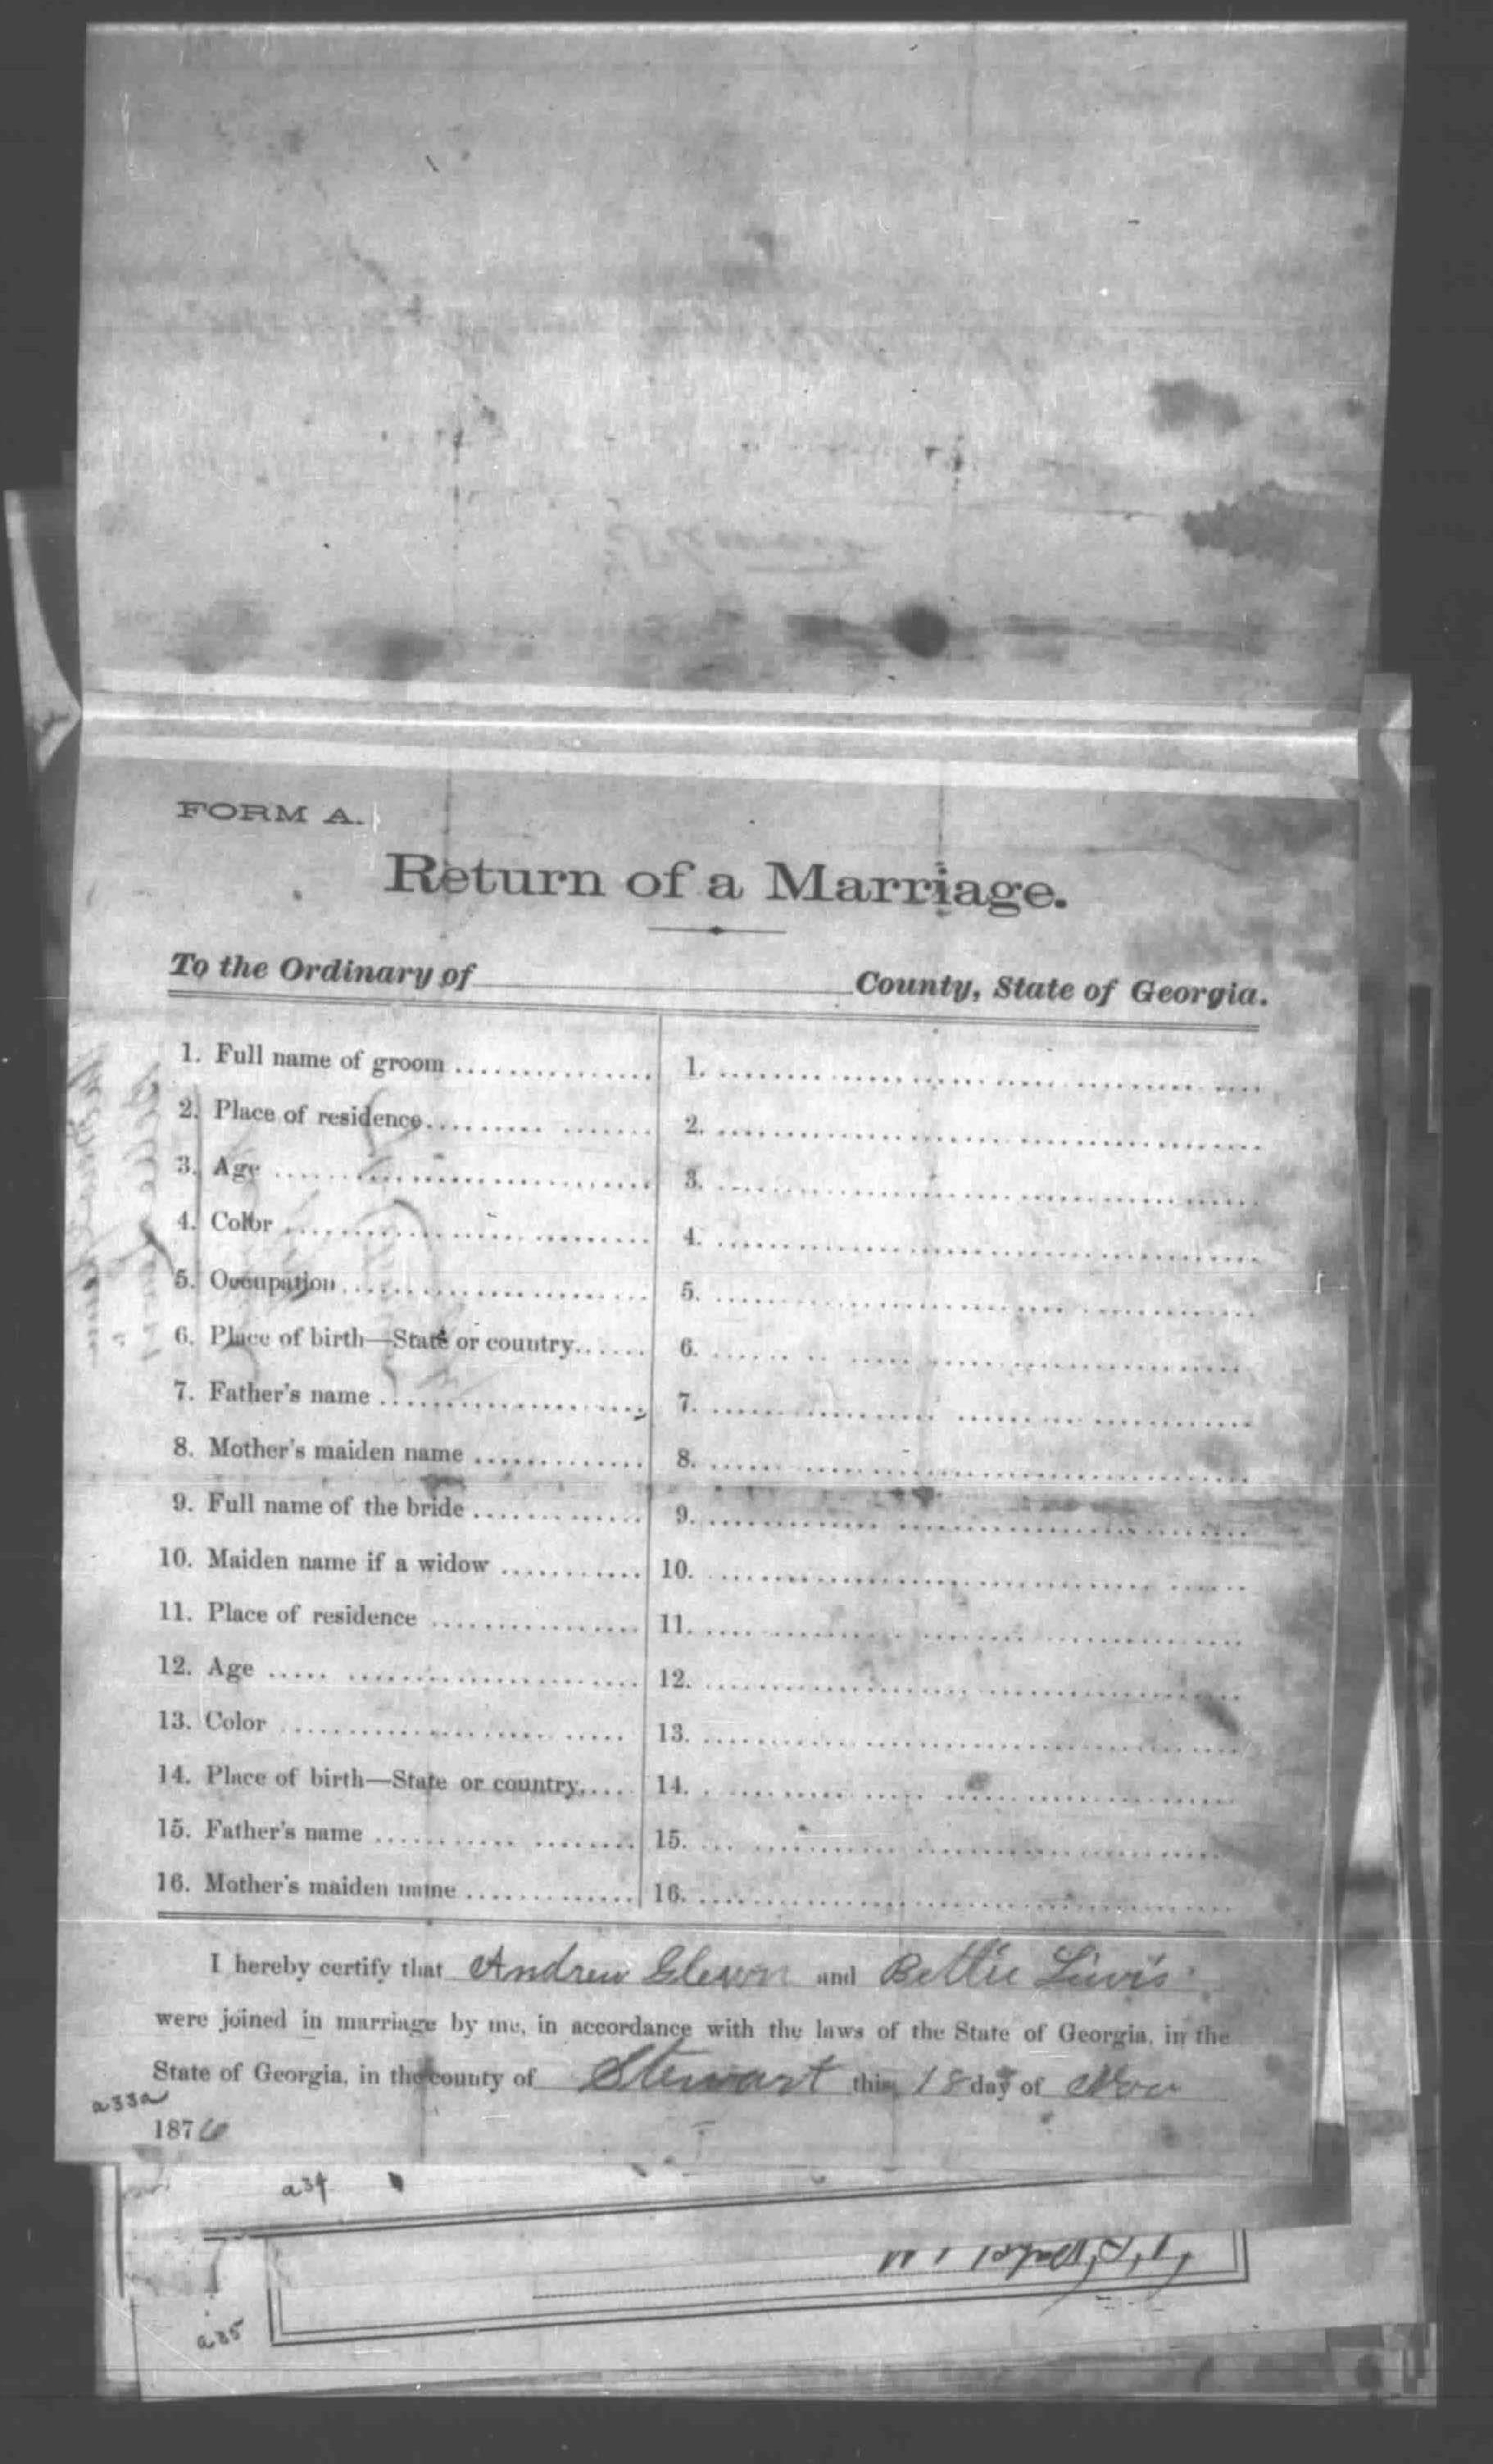 FORM A.
Return of a Marriage.
To the Ordinary of County, State of Georgia.
1. Full name of groom 1.
2. Place of residence 2.
3. Age 3.
4. Color 4.
5. Occupation 5.
6. Place of birth—State or country 6.
7. Father's name 7.
8. Mother's maiden name 8.
9. Full name of the bride 9.
10. Maiden name if a widow 10.
11. Place of residence 11.
12. Age 12.
13. Color 13.
14. Place of birth—State or country 14.
15. Father's name 15.
16. Mother's maiden name 16.
I hereby certify that Andrew Glenn and Bettie Lewis
were joined in marriage by me, in accordance with the laws of the State of Georgia, in the
State of Georgia, in the county of Stewart this 18 day of Nov
a33a
1876
a34
a35